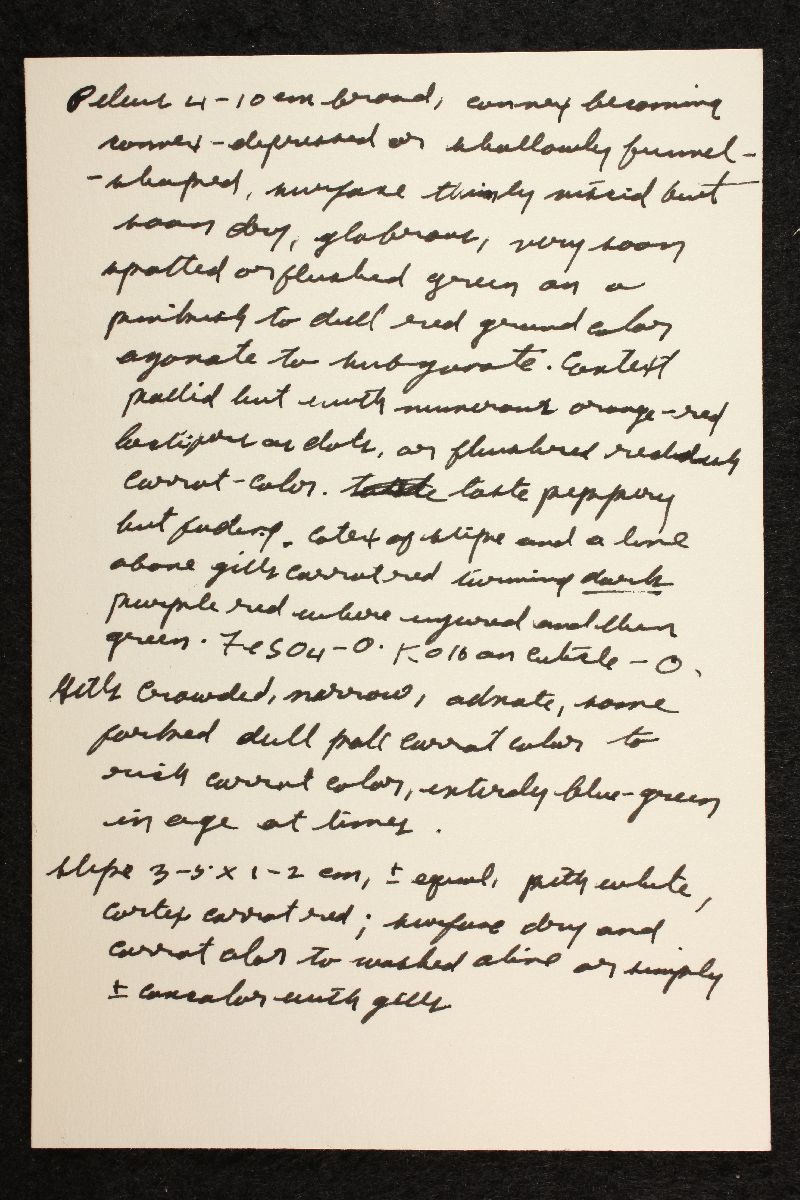 Pileus 4-10 cm broad, convex becoming
convex-depressed or shallowly funnel-
-shaped, surface thinly viscid but
soon dry, glabrous, very soon
spotted or flushed green on a
pinkish to dull red ground color
azonate to subzonate. Context
pallid but with numerous orange-red
lactifers as dots, or flushed reddish
carrot-color. taste peppery
but fading. Latex of stipe and a line
above gills carrot red turning dark
purple red where injured and then
green. FeSO4-O. KOH on cuticle - O.
Gills crowded, narrow, adnate, some
forked dull pale carrot color to
rich carrot color, entirely blue-green
in age at times.
Stipe 3-5 x 1-2 cm, ± equal, pith white,
cortex carrot red; surface dry and
carrot color to washed olive or simply
± concolor with gills